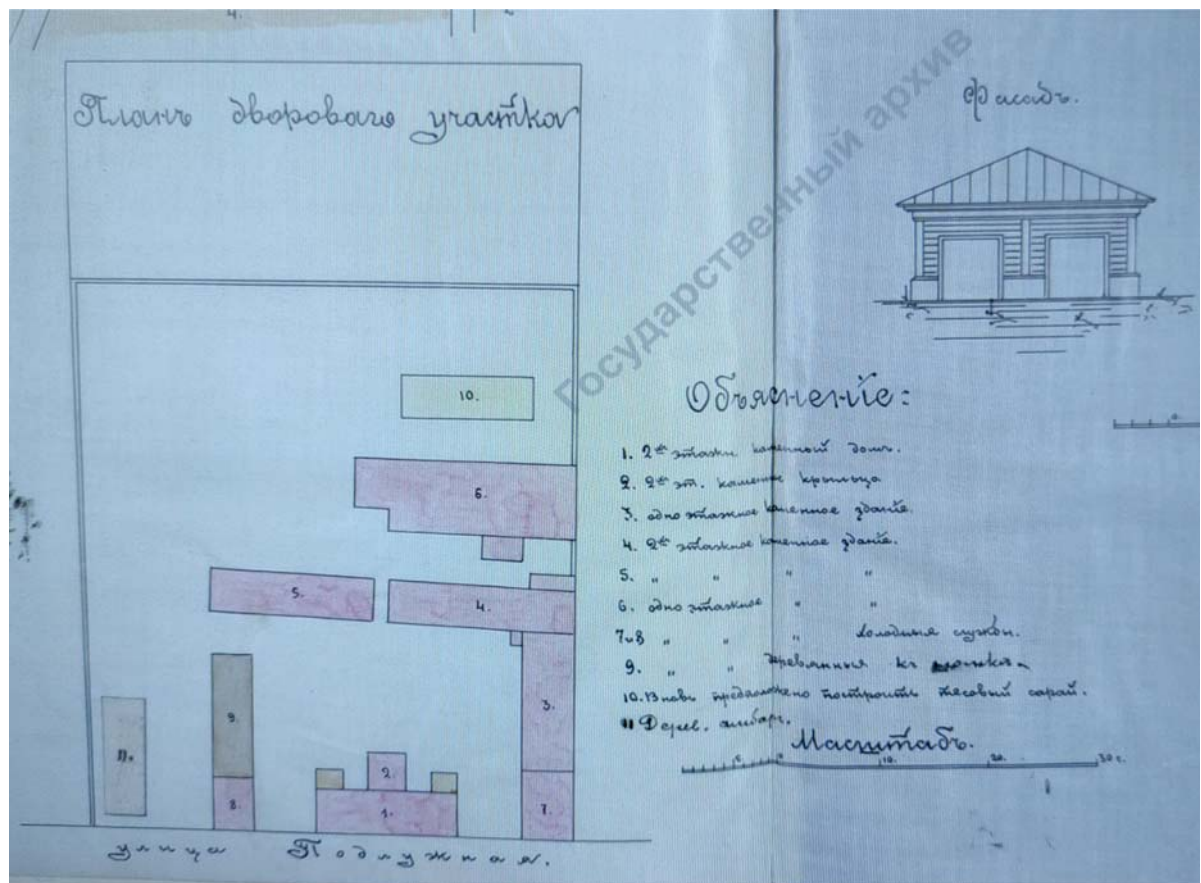 4.
2
Планъ двороваго участка
Фасадъ.
Государственный архив
10.
6.
5.
4.
9.
3.
11.
2.
8.
1.
7.
улица Подлужная.
Объясненіе:
1. 2хъ этажн. каменный домъ.
2. 2хъ эт. каменные крыльца
3. одноэтажное каменное зданіе.
4. 2хъ этажное каменное зданіе.
5. " " " "
6. одноэтажное " "
7 и 8 " " " холодныя службы.
9. " " деревянныя
10. Вновь предположено построить тесовый сарай.
11 Дерев. амбаръ.
Масштабъ.
5 0 10. 20. 30 с.